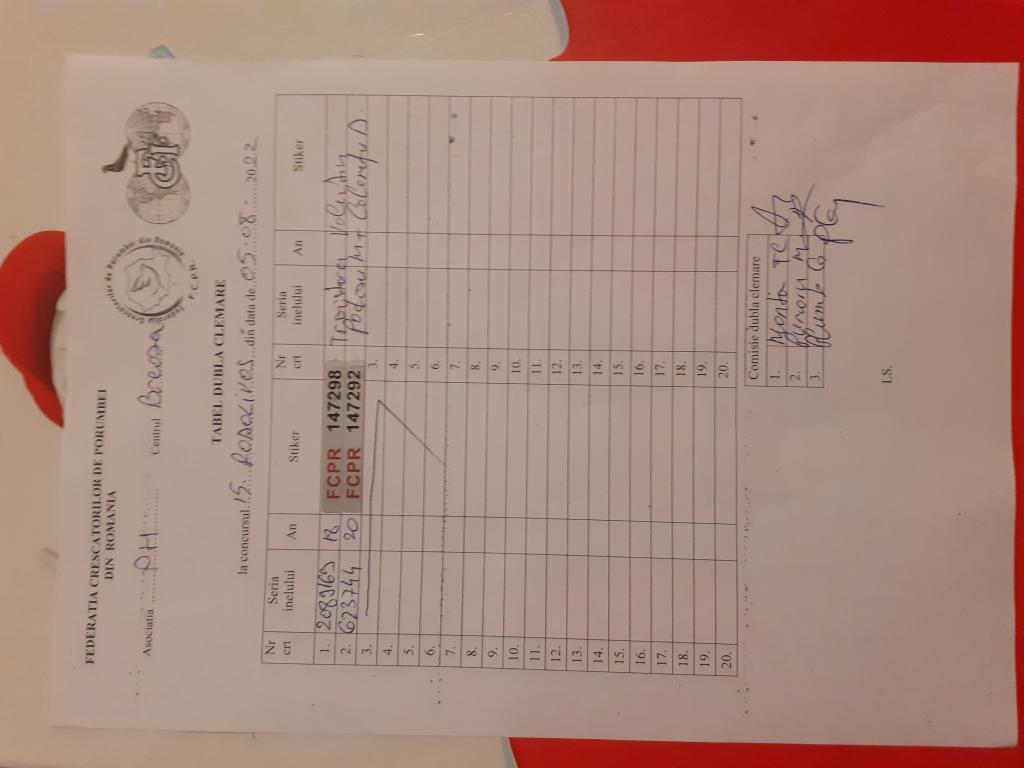 FEDERATIA CRESCATORILOR DE PORUMBEI
DIN ROMANIA
Federatia Crescatorilor de Porumbei din Romania
F.C.P.R.
FCI
Asociatia ...PH............ Centrul Breaza
TABEL DUBLA CLEMARE
la concursul 15 din data de 05.08. 2022
Nr crt Seria inelului An Stiker Nr crt Seria inelului An Stiker
1. 2089169 18 FCPR 147298
2. 623744 20 FCPR 147292
3. 3.
4. 4.
5. 5.
6. 6.
7. 7.
8. 8.
9. 9.
10. 10.
11. 11.
12. 12.
13. 13.
14. 14.
15. 15.
16. 16.
17. 17.
18. 18.
19. 19.
20. 20.
Comisie dubla clemare
1.
2.
3.
I.S.